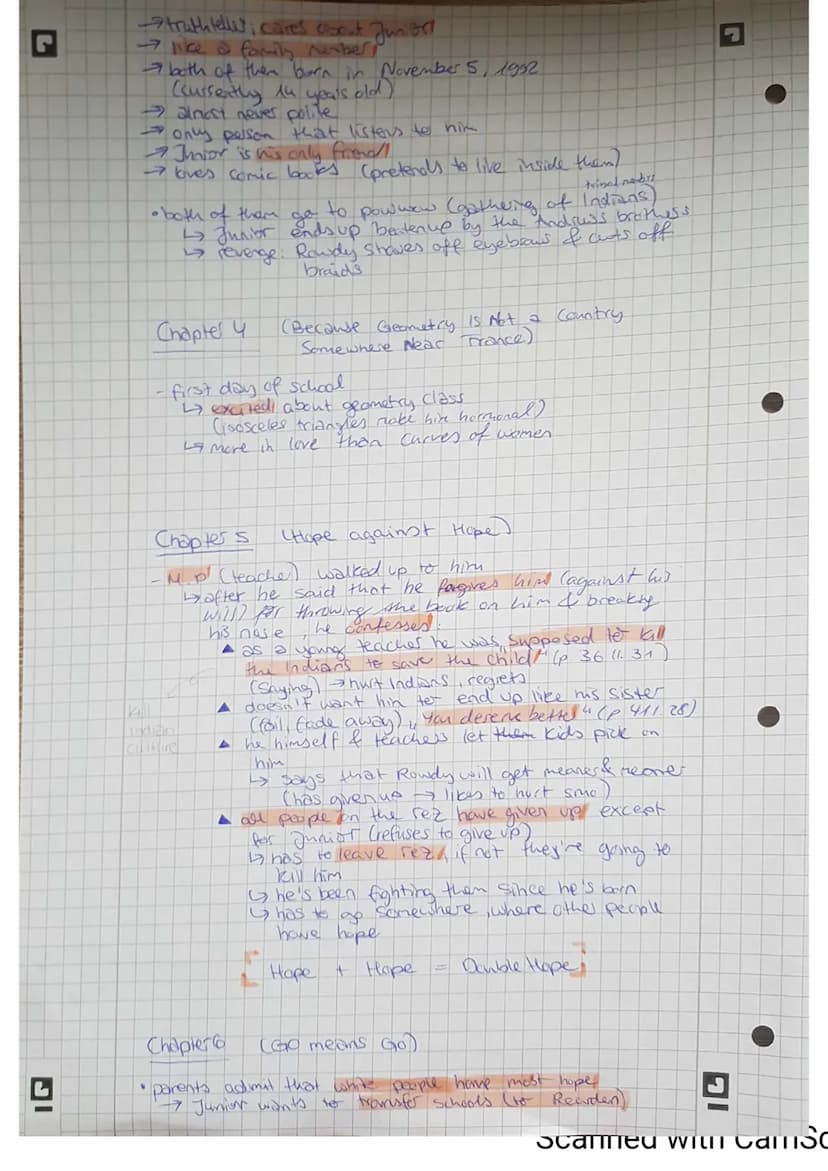 → truthteller, cares about Junior
→ like a family member
→ both of them born in November 5, 1992
(currently 14 years old)
→ almost never polite
→ only person that listens to him
→ Junior is his only friend
→ loves comic books (pretends to live inside them)
tribal membrs
• both of them go to powwow (gathering of Indians)
↳ Junior ends up beaten up by the Andruss brothers
↳ revenge: Rowdy shaves off eyebrows & cuts off
braids
Chapter 4 (Because Geometry Is Not a Country
Somewhere Near France)
- first day of school
↳ excited about geometry class
(isosceles triangles make him hormonal)
↳ more in love than curves of women
Chapter 5 (Hope against Hope)
- M. P (teacher) walked up to him
↳ after he said that he forgives him (against his
will) for throwing the book on him & breaking
his nose, he confesses:
▲ as a young teacher he was „supposed to kill
the Indians to save the child" (p 36 ll. 31)
(saying) → hurt Indians, regrets
▲ doesn't want him to end up like his sister
(fail, fade away) „You deserve better" (p 41 l. 28)
kill
indian
culture
▲ he himself & teachers let them kids pick on
him
↳ says that Rowdy will get meaner & meaner
(has given up → likes to hurt smo)
▲ all people on the rez have given up except
for Junior (refuses to give up)
↳ has to leave rez, if not they're going to
kill him
↳ he's been fighting them since he's born
↳ has to go somewhere, where other people
have hope
[ Hope + Hope = Double Hope ]
Chapter 6 (GO means Go)
• parents admit that white people have most hope
→ Junior wants to transfer schools (to Reardan)
Scanned with CamSc